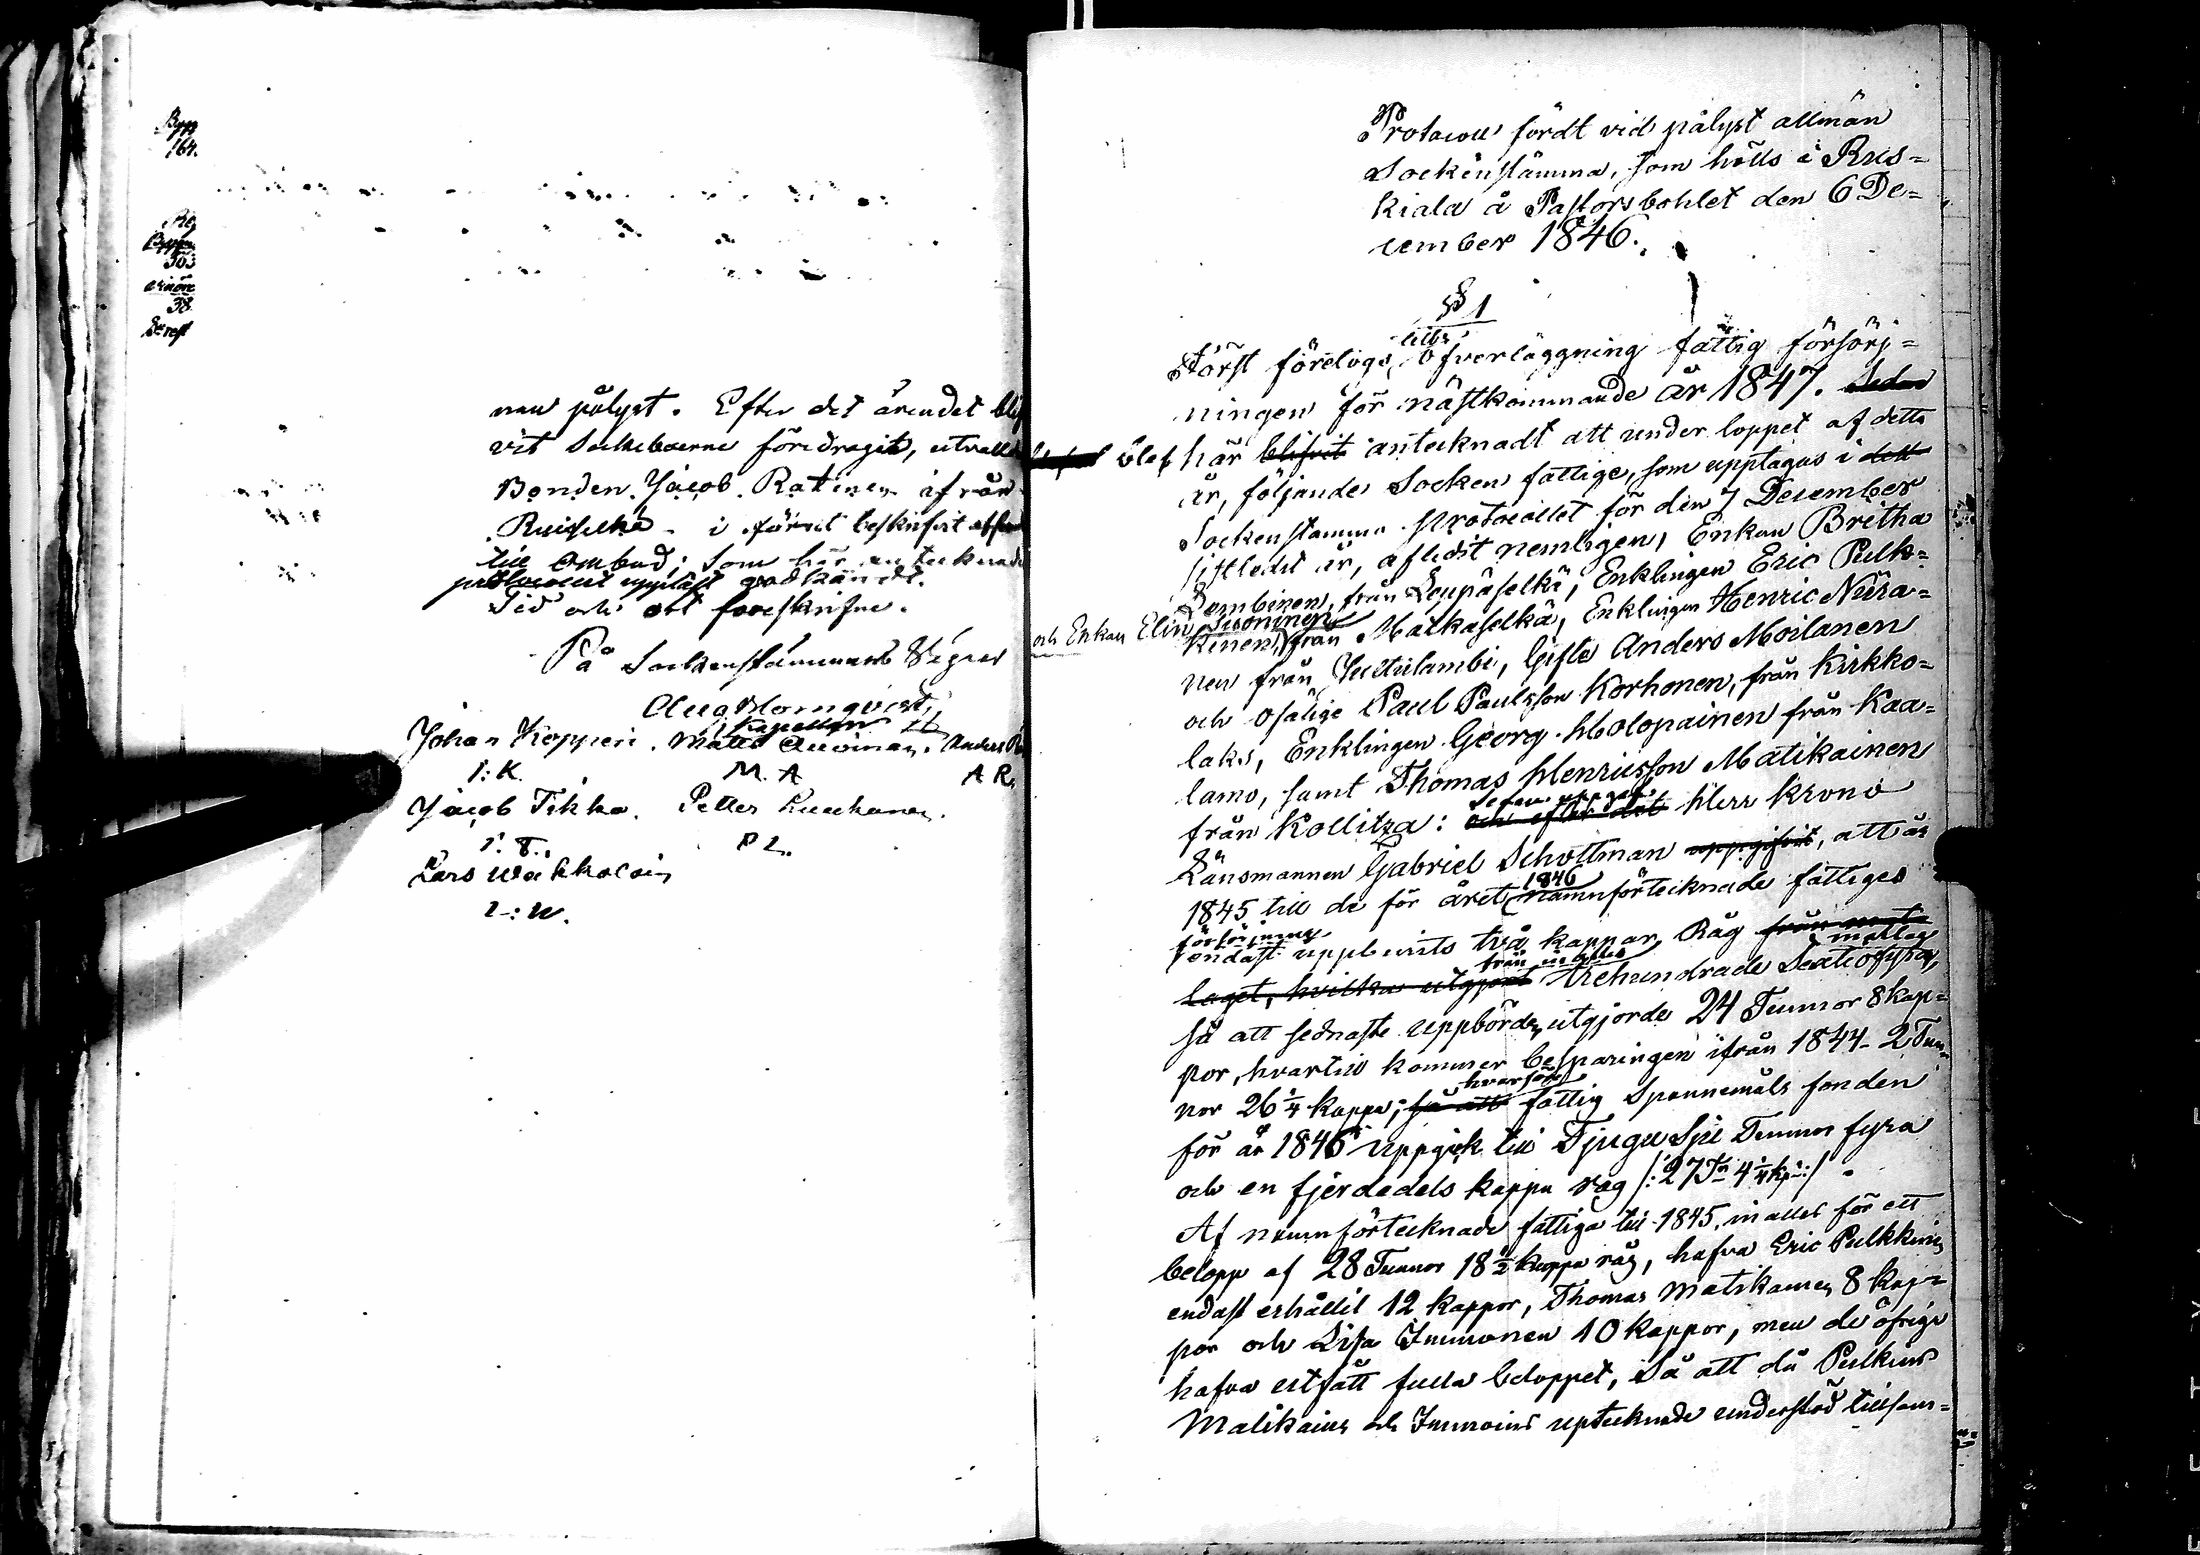 Bygg
164.
38
nen pålyst. Efter det ärendet blif
vit Sockneboerne föredragit, utvalldes
Bonden Jacob Ratinen ifrån
Ruskelkä - i förut beskrifvit afseende
till Ombud; Som här antecknadt
protocollet uppläst godkändt.
Tid och ort föreskrifne.
På Sockenstämmans Vägnar
Aug Blomqvist,
Kapellan
Johan Kopponen. Matts Auvinen. Anders
I: K. M. A A R.
Jacob Tikka. Petter Luukonen.
I. T. P L.
Lars Wäkkolain
L: W.
Protocoll fördt vid pålyst allmän
Sockenstämma, som hölls i Rus=
kiala å Pastorsbohlet den 6 De=
cember 1846.
§ 1
Först företogs till öfverläggning fattig försörj=
ningen för nästkommande år 1847. Sedan
blef här blifvit antecknadt att under loppet af detta
år, följande Socken fattige, som upptagas i dett
Sockenstämma Protocollet för den 7 December
sistledit år, aflidit nemligen, Enkan Britha
Sembinen, från Leppäselkä, Enklingen Eric Pulk=
och Enkan Elin Suoninen
kinen, från Matkaselkä, Enklingen Henric Nüra=
nen från Juttulambi, Gifte Anders Moilanen
och Osälige Paul Paulsson Korhonen, från Kirkko=
laks, Enklingen Georg Holopainen från Kaa=
lamo, samt Thomas Henricsson Matikainen
från Kollitza: och efter det Sedan uppgaf Herr Krono
Länsmannen Gabriel Schottman uppgifvit, att år
1845 till de för året 1846 namnförtecknade fattiges
försörjning
endast uppburits två kappar Råg från
laget, hvilka utgjort från et hvarje Trehundrade Sextiofyra matlag,
så att sednaste uppbörden utgjorde 24 Tunnor 8 kap=
por, hvartill kommer besparingen ifrån 1844 - 2 Tun=
nor 26 1/4 kappa; så att hvarföre fattig Spannemåls fonden
för år 1846 uppgick till Tjugu Sju Tunnor fyra
och en fjerdedels kappa råg /: 27 Tr 4 1/4 kpr :/
Af namnförtecknade fattiga till 1845, inalles för ett
belopp af 28 Tunnor 18 1/2 kappa råg, hafva Eric Pulkkinen
endast erhållit 12 kappor, Thomas Matikainen 8 kap=
por och Lisa Immonen 10 kappor, men de öfrige
hafva utfått fulla beloppet, Så att då Pulkins
Matikains och Immoins uptecknade understöd tillsam=